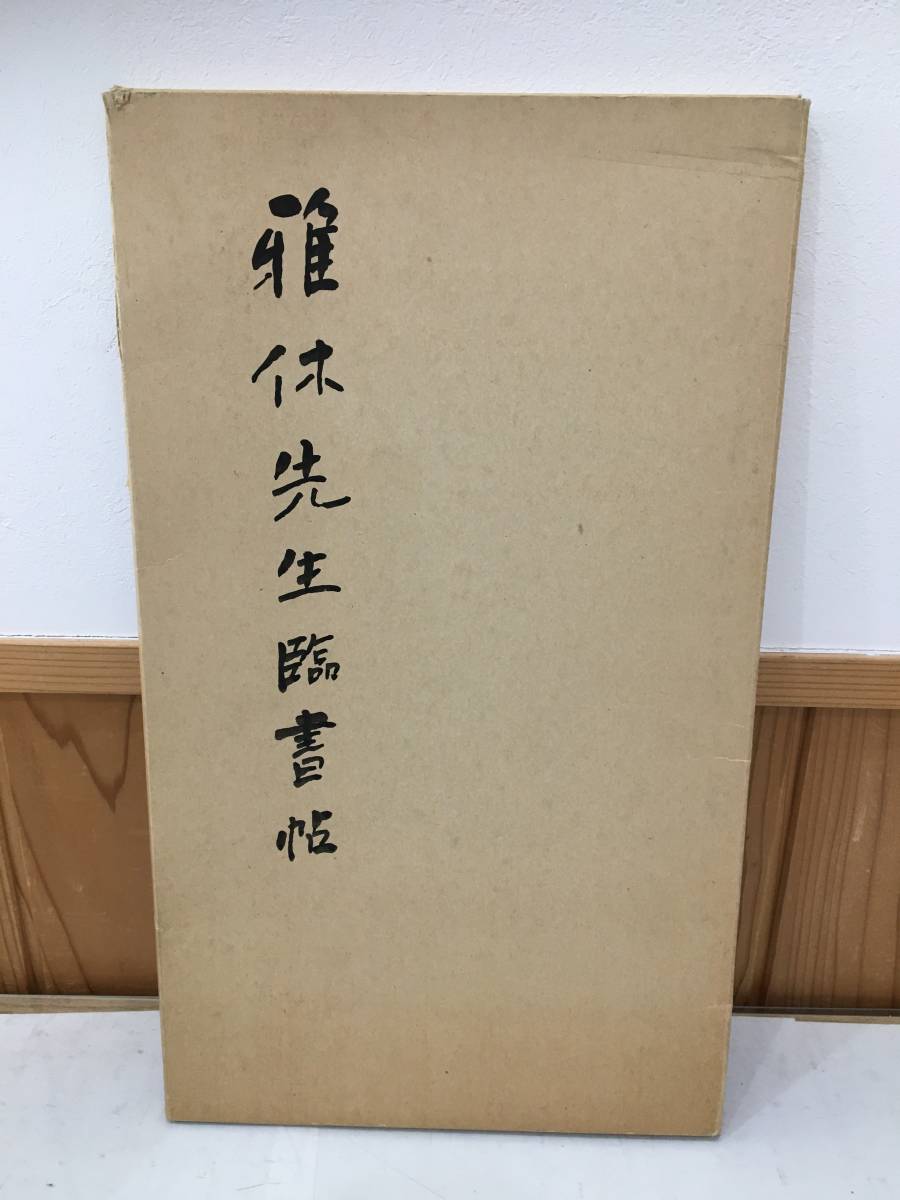 雅休先生臨書帖